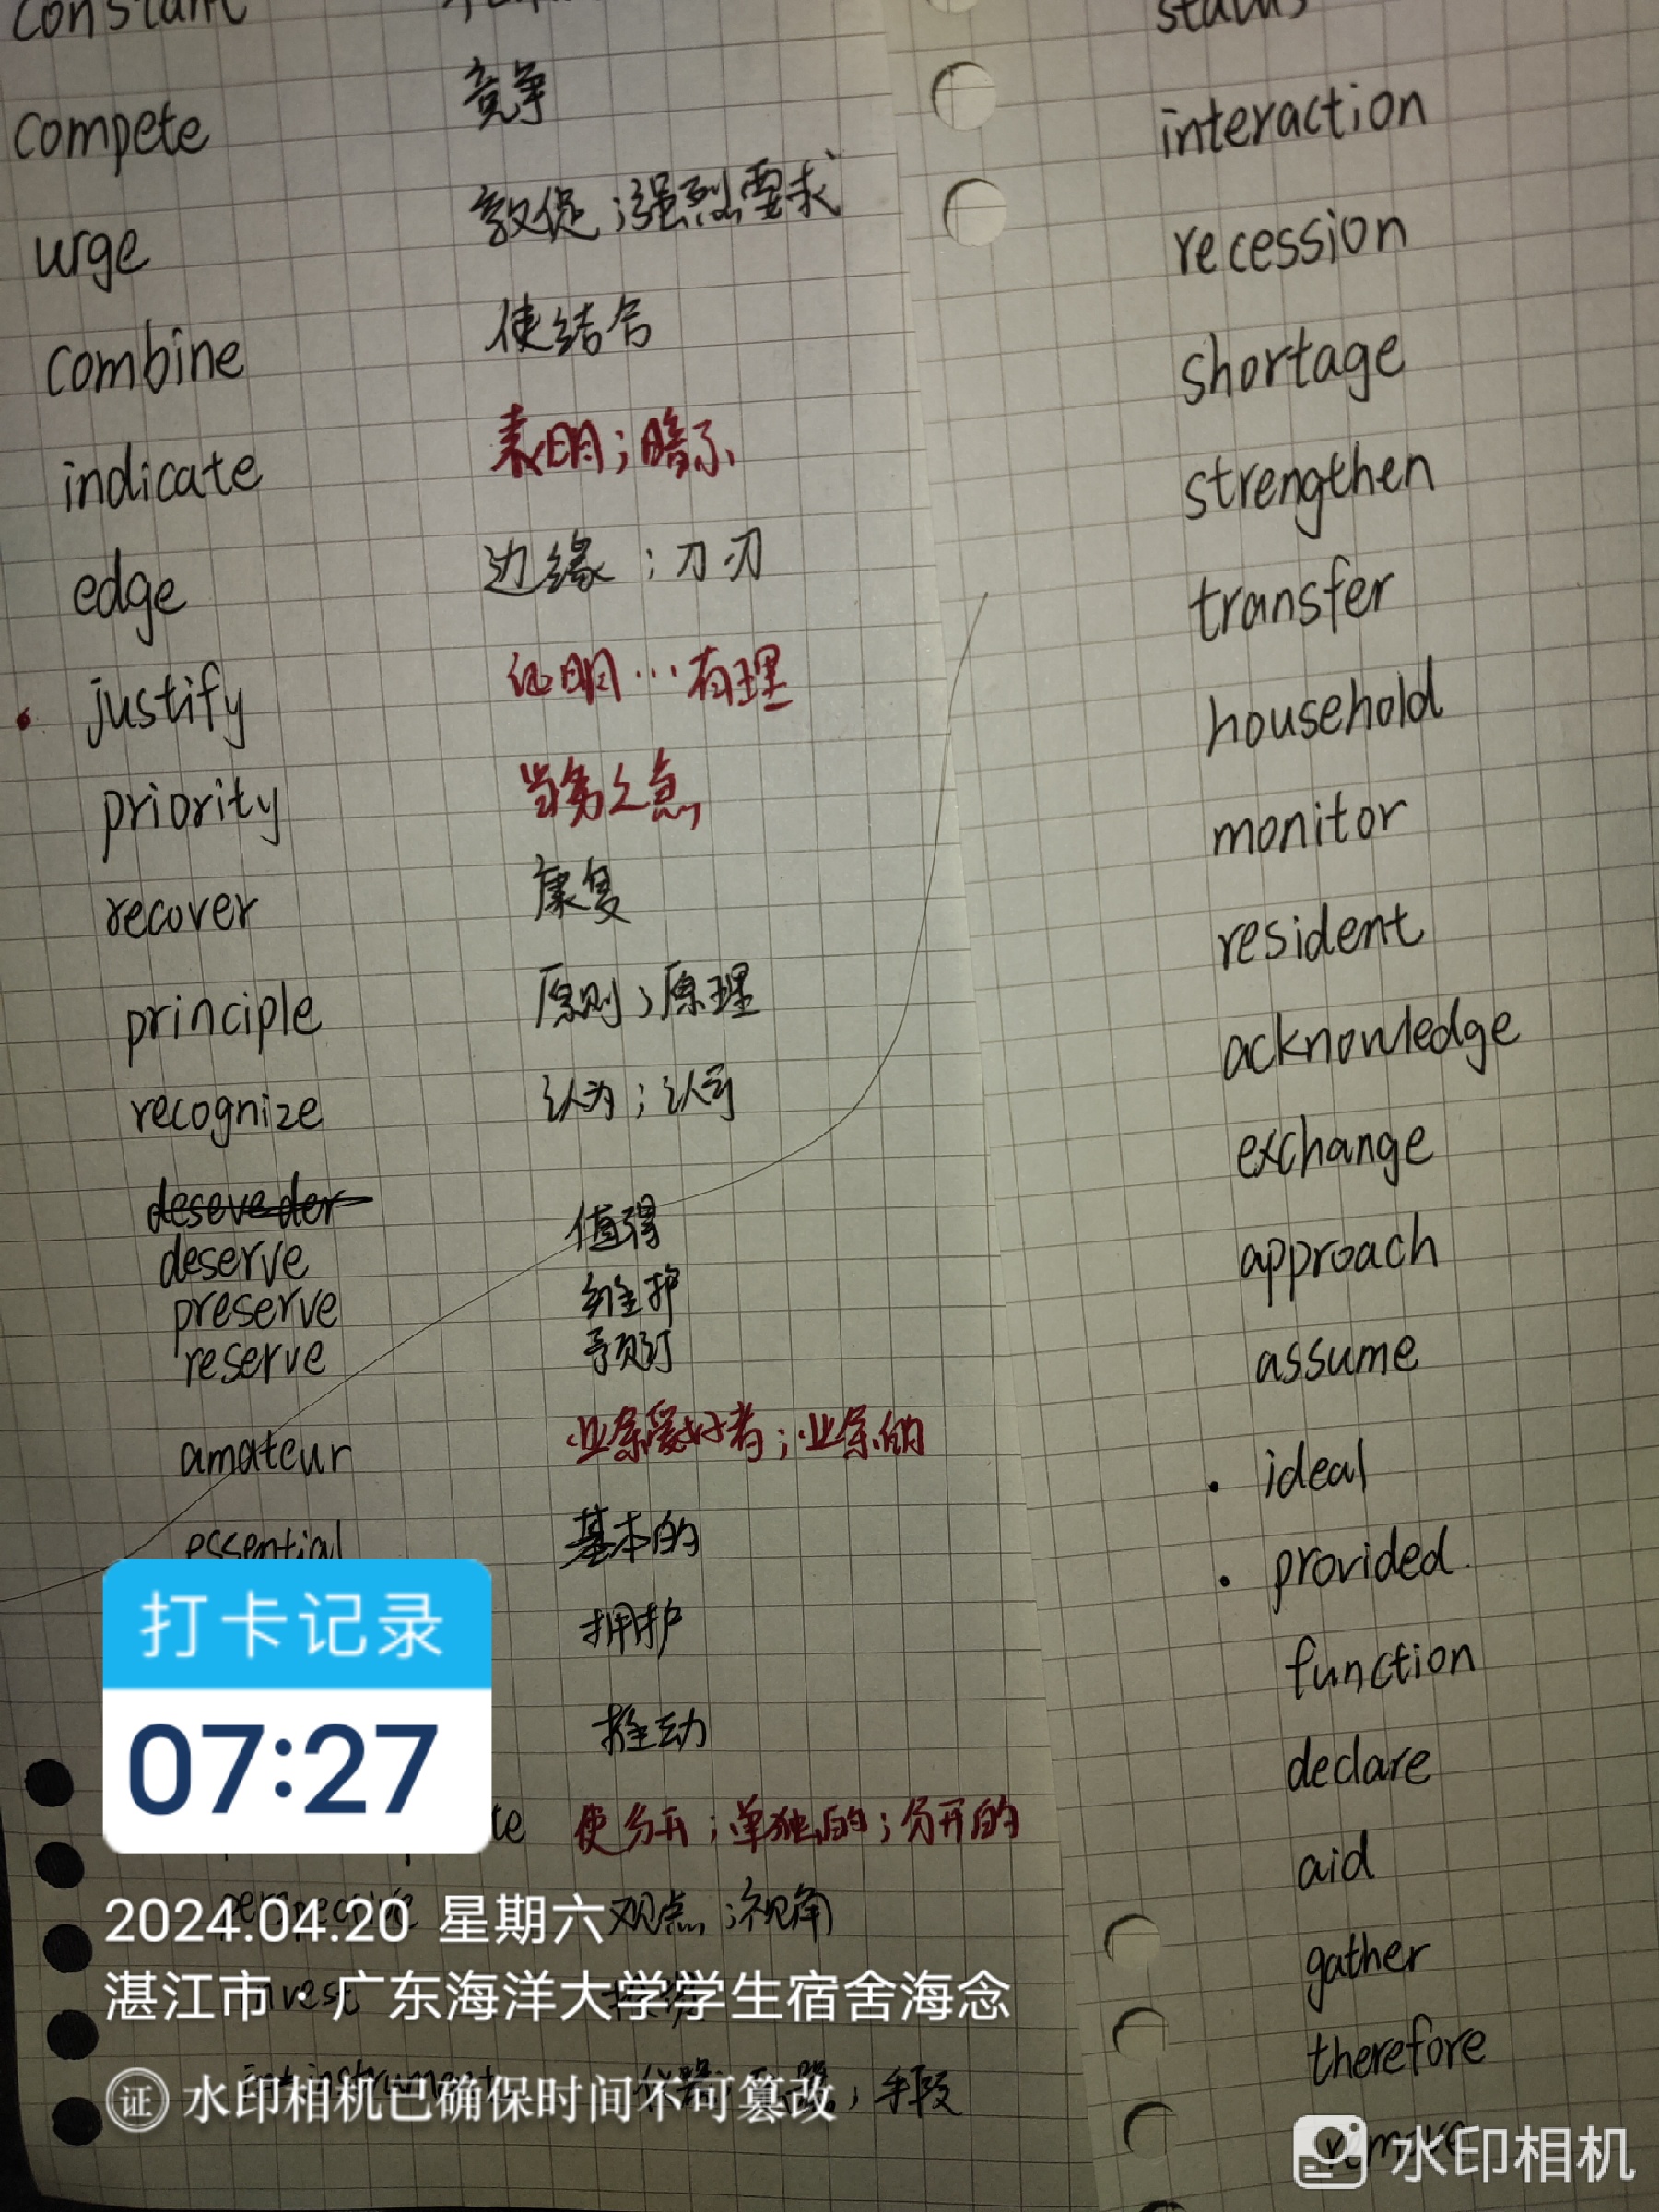 constant
compete 竞争
urge 敦促；强烈要求
combine 使结合
indicate 表明；暗示
edge 边缘；刀刃
justify 证明…有理
priority 当务之急
recover 康复
principle 原则；原理
recognize 认为；认可
deserve 值得
preserve 维护
reserve 预订
amateur 业余爱好者；业余的
essential 基本的
拥护
推动
te 使分开；单独的；分开的
perspective 观点；视角
invest
instrument 仪器；手段
status
interaction
recession
shortage
strengthen
transfer
household
monitor
resident
acknowledge
exchange
approach
assume
ideal
provided
function
declare
aid
gather
therefore
remove
打卡记录
07:27
2024.04.20 星期六
湛江市·广东海洋大学学生宿舍海念
证 水印相机已确保时间不可篡改
水印相机